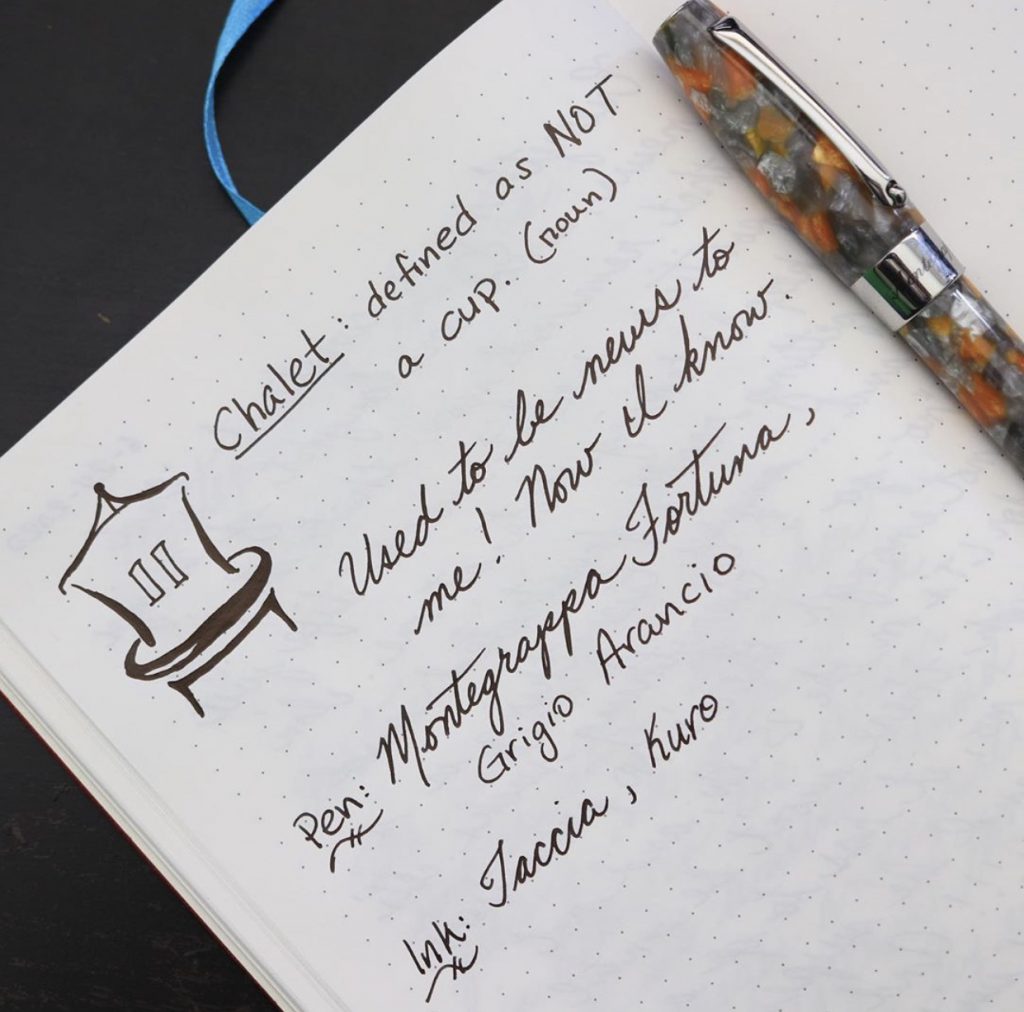 Chalet: defined as NOT
a cup. (noun)
Used to be news to
me! Now I know.
Pen: Montegrappa Fortuna,
Grigio Arancio
Ink: Taccia, Kuro